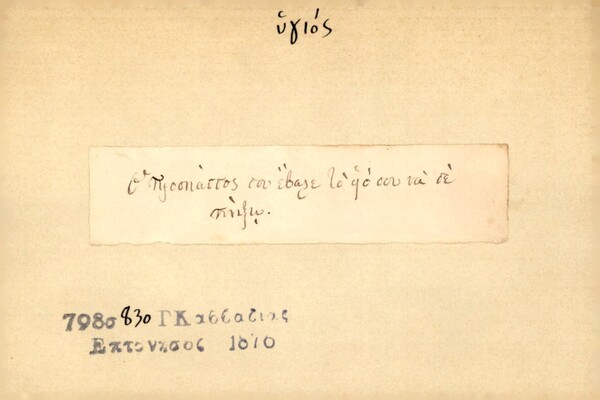 ὑγιός
Ὁ προσπάππος σου ἔβαλε τὸ ὑγιό σου νὰ σὲ
πνίξῃ.
798σ 830 ΓΚαββαδιας
Επτονησος 1870